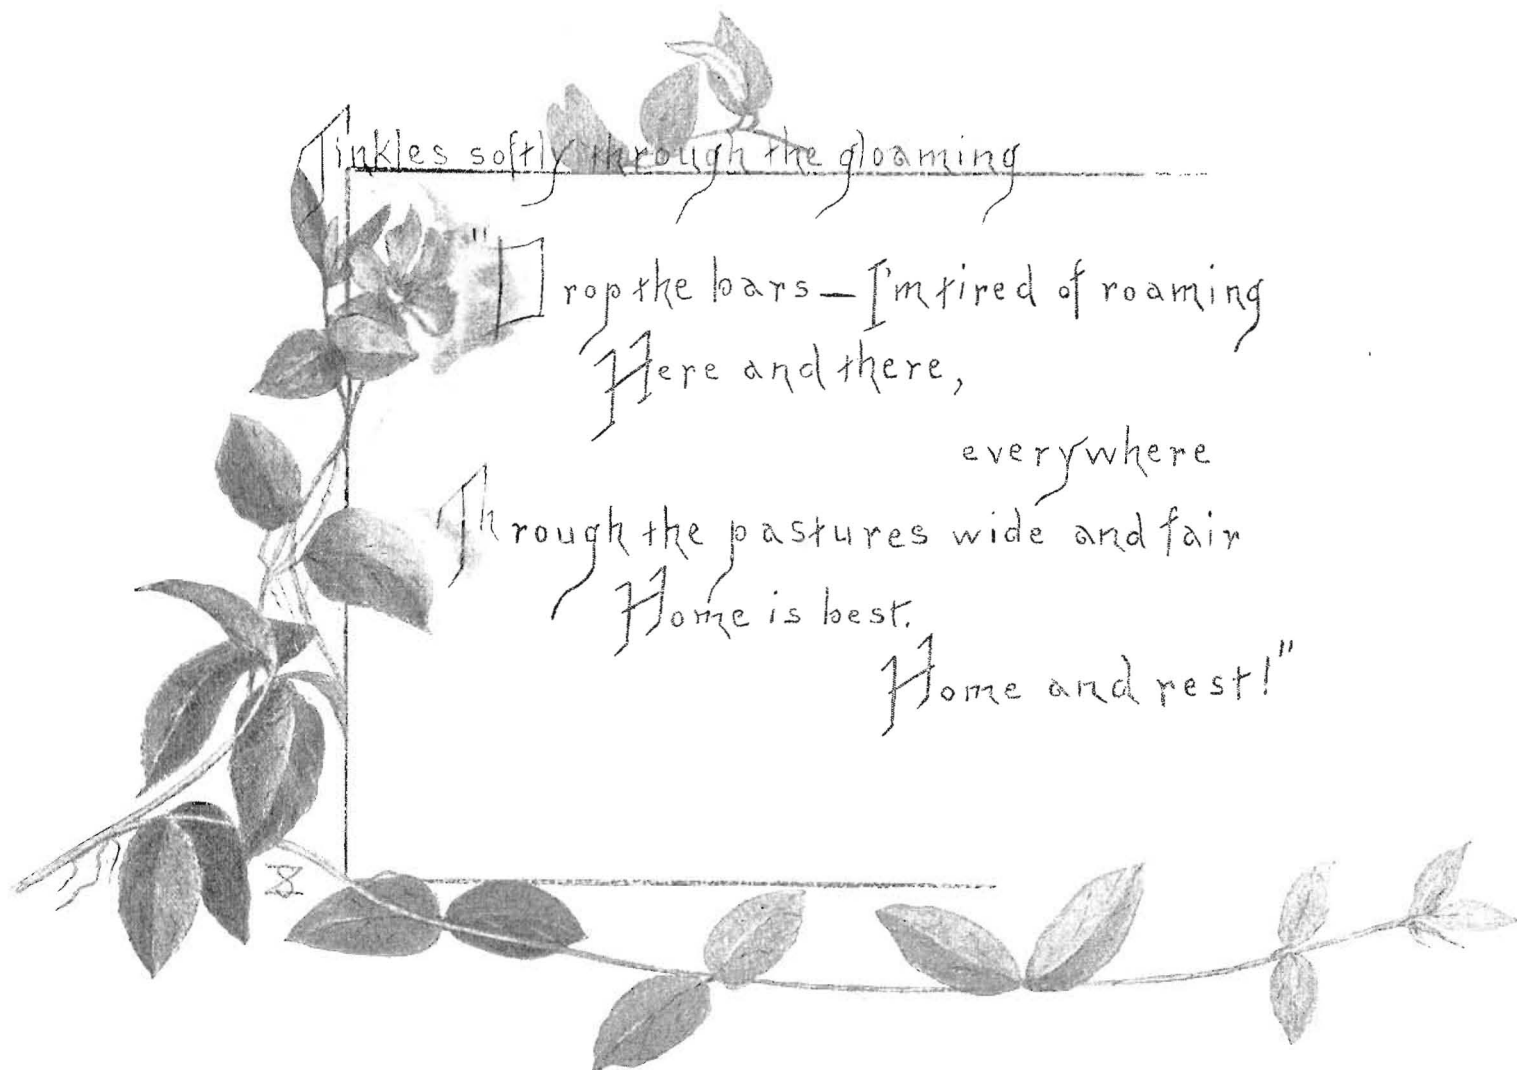 Tinkles softly through the gloaming
"Drop the bars — I'm tired of roaming
Here and there,
everywhere
Through the pastures wide and fair
Home is best.
Home and rest!"